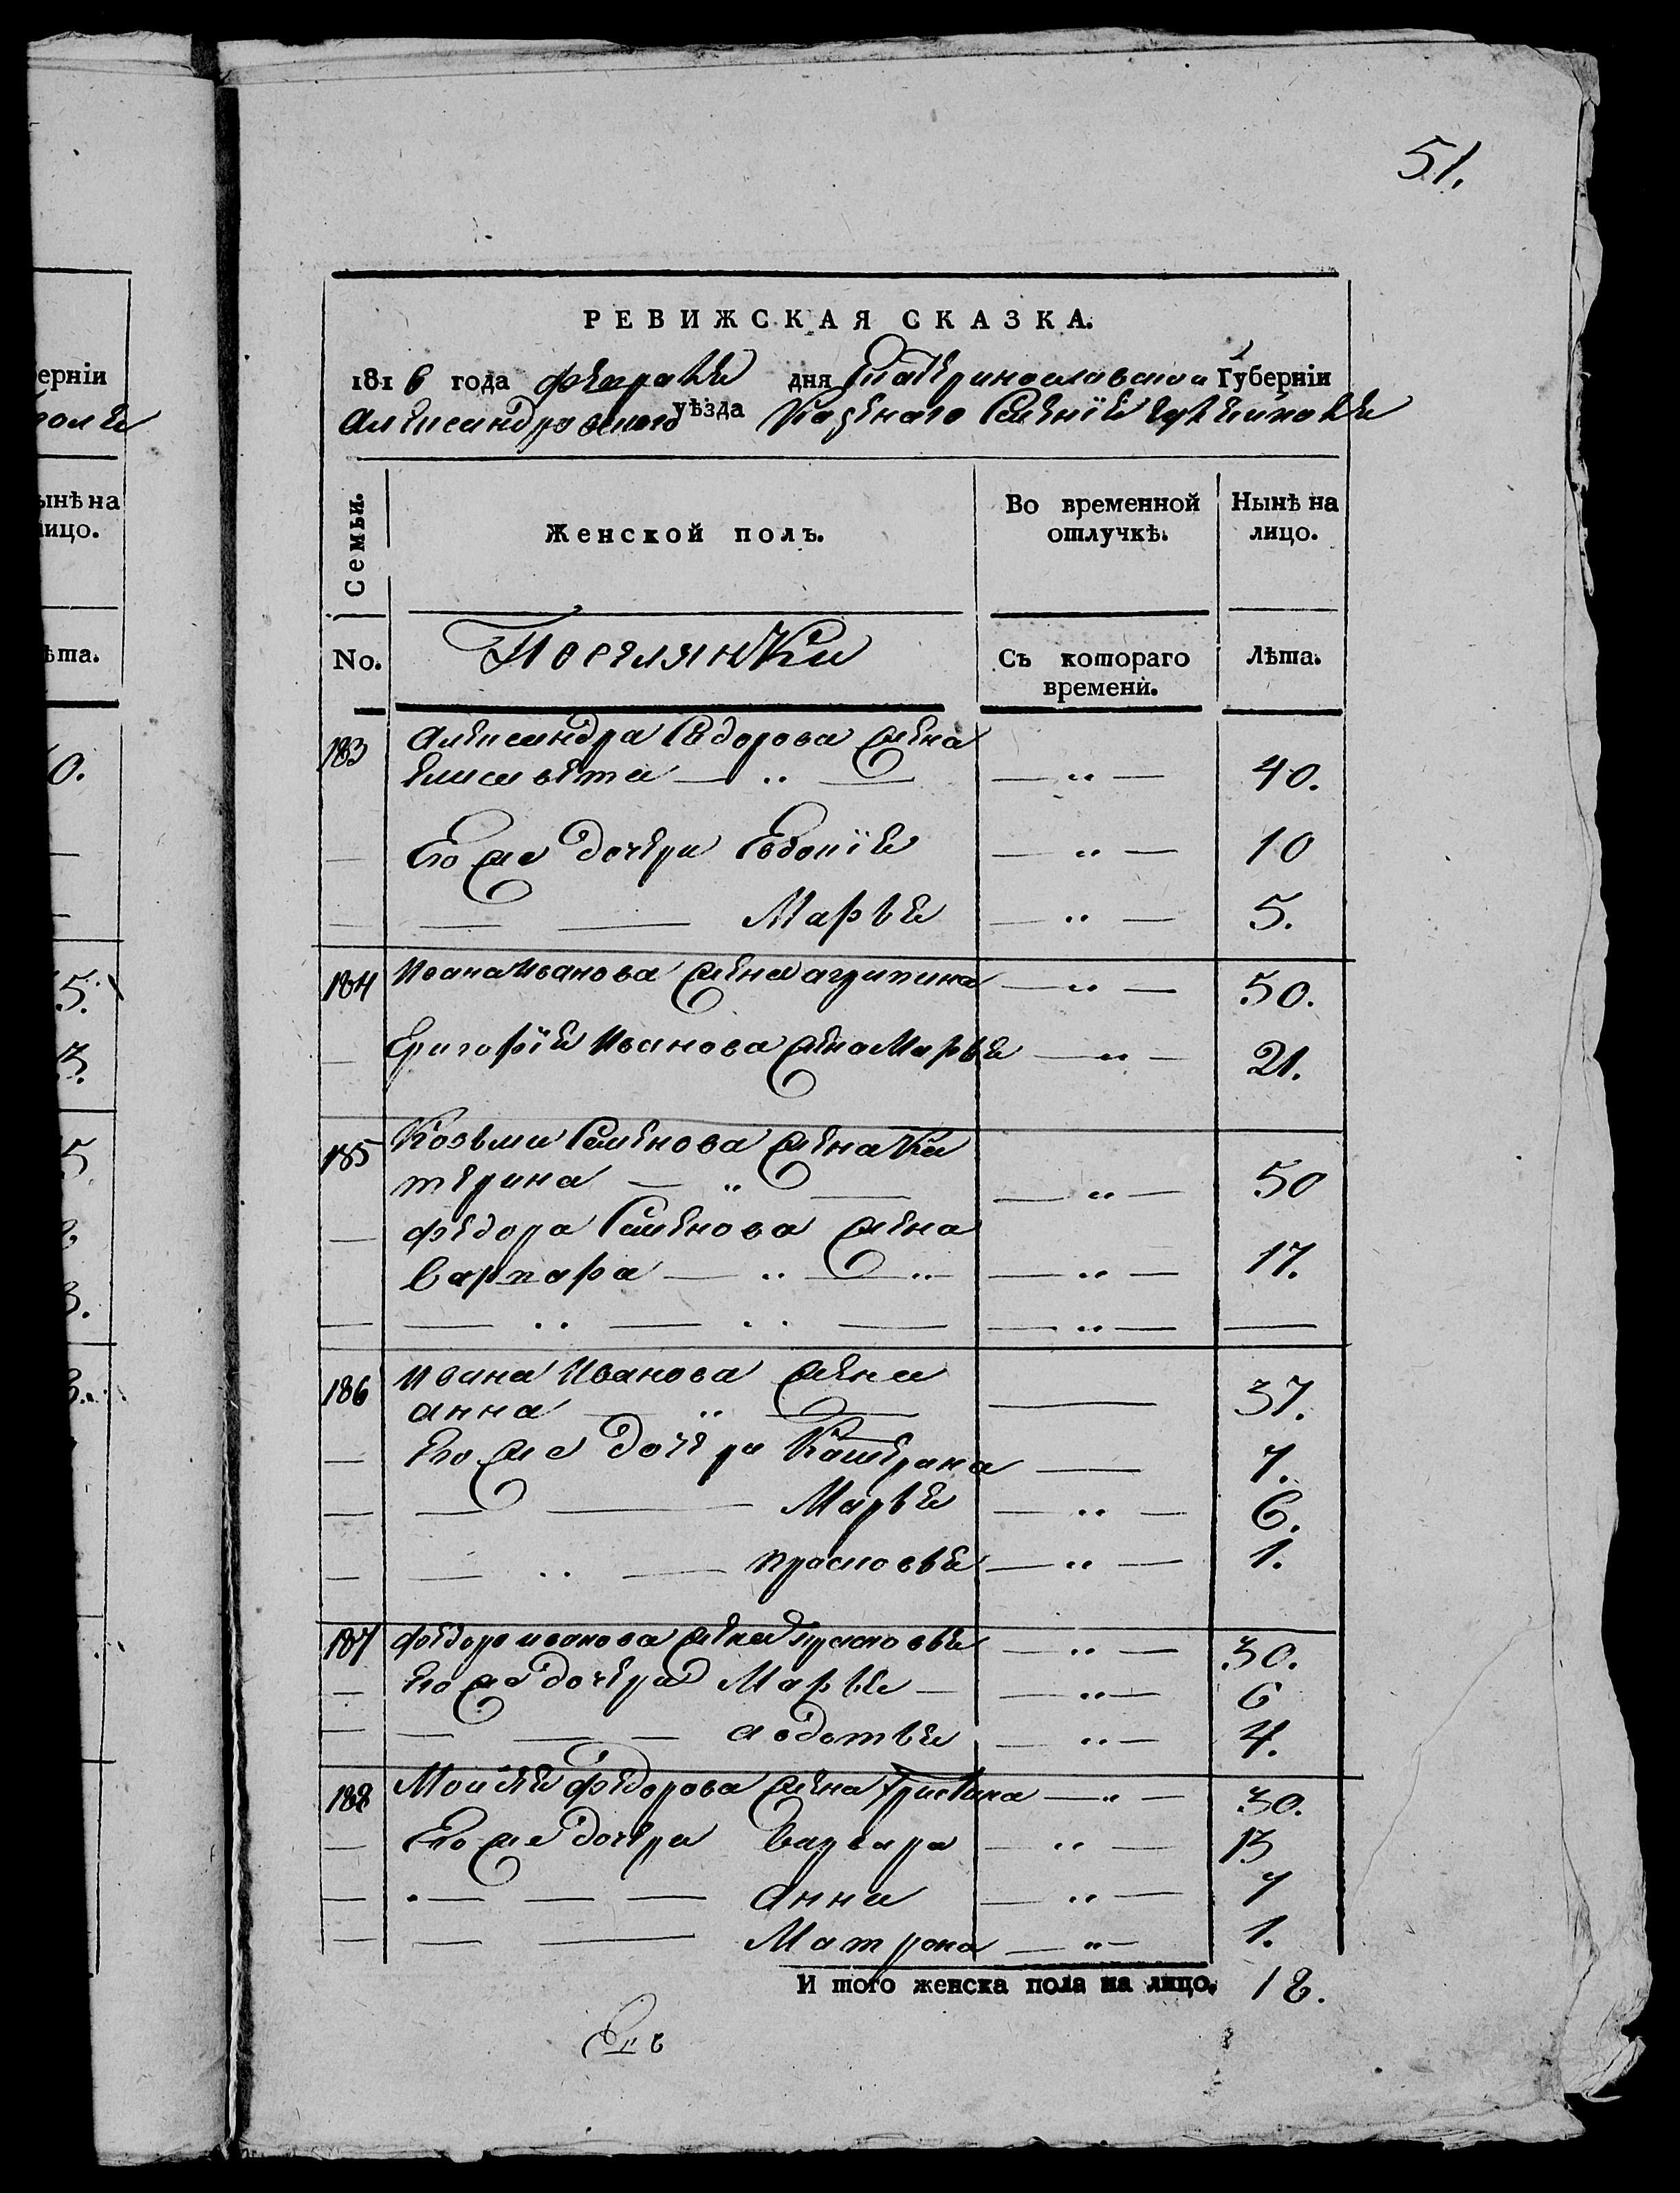 51.
РЕВИЖСКАЯ СКАЗКА.
1816 года февраля дня Екатеринославской Губерніи
Александровского уѣзда Казенаго Селенія
Семьи. Женской полъ. Во временной отлучкѣ. Нынѣ на лицо.
No. Поселянки Съ котораго времени. Лѣта.
183 Александра Федорова жена
Елисавета — „ — — „ — 40.
Его же дочери Евдокія — „ — 10
— — Марья — „ — 5.
184 Ивана Иванова жена агрипина — „ — 50.
Григорія Иванова жена Марья — „ — 21.
185 Козьми Семенова жена Ка
терина — „ — — „ — 50
федора Семенова жена
Варвара — „ — „ — „ — 17.
— — „ — „ — — „ — —
186 Ивана Иванова жена
анна — „ — — 37.
Его же дочери Катерина — 7.
— — Марья — „ — 6.
— „ — прасковья — „ — 1.
187 федора иванова жена прасковья — „ — 30.
Его же дочери Марья — — „ — 6
— — — авдотья — „ — 4.
188 Моисея федорова жена христина — „ — 30.
Его же дочери варвара — „ — 13
— — — анна — „ — 7
— — Матрона — „ — 1.
И того женска пола на лицо. 18.
ерніи
ынѣ на
ицо.
ѣта.
0.
5.
3.
5.
3.